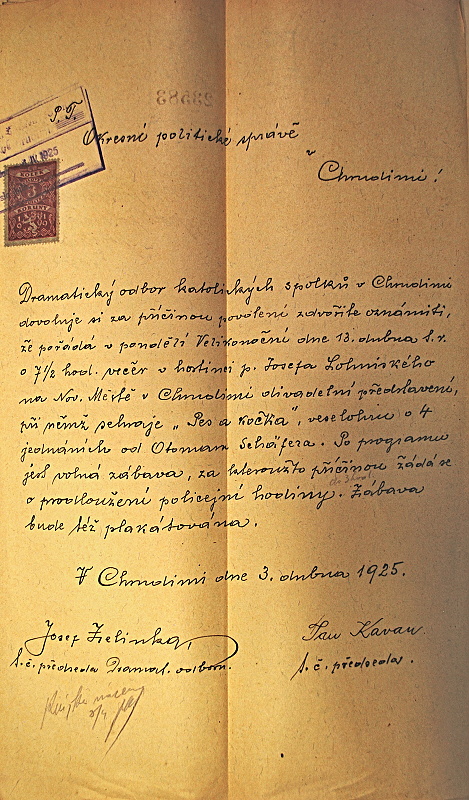 23583
P. T.
Okresní politické správě
v
Chrudimi!
IV 1925
3
KORUNY
Dramatický odbor katolických spolků v Chrudimi
dovoluje si za příčinou povolení zdvořile oznámiti,
že pořádá v pondělí Velikonoční dne 13. dubna t.r.
o 7 1/2 hod. večer v hostinci p. Josefa Lohniského
na Nov. Městě v Chrudimi divadelní představení,
při němž sehraje „Pes a kočka", veselohru o 4
jednáních od Otomara Schäfera. Po programu
jest volná zábava, za kteroužto příčinou žádá se
o prodloužení policejní hodiny. Zábava
bude též plakátována.
V Chrudimi dne 3. dubna 1925.
Josef Zelinka,
t. č. předseda Dramat. odboru.
Jan Kavan.
t. č. předseda.